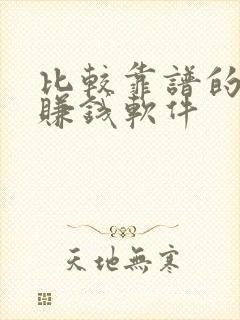 比較靠譜的
賺錢軟件
天地無寒